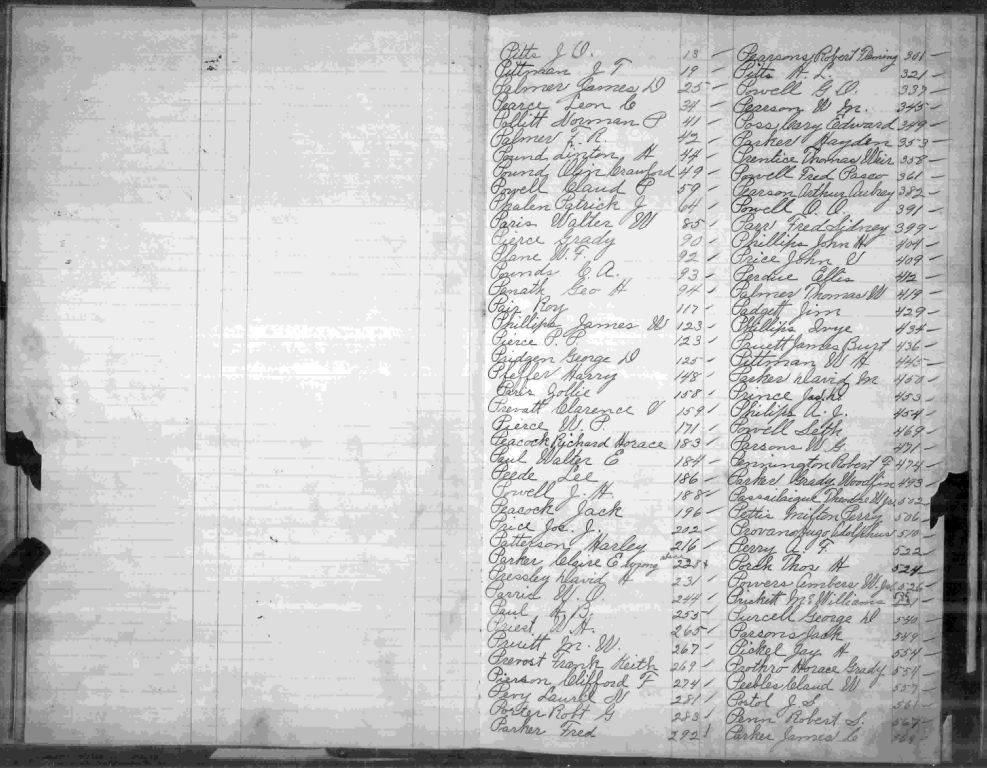 Pitts J. O. 13 –
Pittman J. T 19 –
Palmer James D 25 –
Pearce Leon C 34 –
Pollitt Norman P 41 –
Palmer F. R 42 –
Pound Linton H 44 –
Pound Crawford 49 –
Powell Claud P 59 –
Phalen Patrick J 64 –
Paris Walter W 85 –
Pierce Grady 90 –
Plane W. F. 92 –
Pounds E A. 93 –
Panath Geo H 94 –
Pair Roy 117 –
Phillips James W 123 –
Pierce P. P 123 –
Pridgen George D 125 –
Pfeffer Harry 148 –
Paris Jollie 158 –
Prevatt Clarence V 159 –
Pierce W. P 171 –
Peacock Richard Horace 183 –
Paul Walter E 184 –
Peede Lee 186 –
Powell J. H 188 –
Peacock Jack 196 –
Price Jos J. 202 –
Patterson Harley 216 –
Parker Claire E 228
Pressley David H 231 –
Parris W. O. 244 –
Paul H B. 255 –
Priest W H. 265 –
Pruitt M. W. 267 –
Prevost Frank Keith 269 –
Pierson Clifford F 274 –
Pevy Laurel 281 –
Porter Robt G 283 –
Parker Fred 292
Pearsons Robert Fleming 301 –
Pitts H. L. 321 –
Powell G. O. 337 –
Pearson W M. 345 –
Poss Cary Edward 349 –
Parker Hayden 353 –
Prentice Thomas Weir 358 –
Powell Fred Pasco 361 –
Pearson Arthur Aubrey 382 –
Powell O. O. 391 –
Parr Fred Sidney 399 –
Phillips John H 404 –
Price John V 409 –
Perdue Ellis 412 –
Palmer Thomas W 419 –
Padgett Jim 429 –
Phillips Irvye 434 –
Puett James Burt 436 –
Pittman W H 445 –
Parker David M 450 –
Prince Jack 453 –
Philips A. J. 454 –
Powell Seth 469 –
Parsons W G 471 –
Pennington Robert F 474 –
Parker Grady 493 –
Passailaigue W Jr 502
Pettis Milton Perry 506 –
Provano Hugo Adolphus 510 –
Perry A F. 522 –
Pork Thos H 524
Powers Ambers W. Jr 526
Prickett Williams –
Purcell George D 540 –
Parsons Jack 549 –
Pickel Jay H 554 –
Prothro Horace Grady 554 –
Peebles Claud W 557 –
Postol J. S. 561 –
Penn Robert S. 567 –
Parker James C